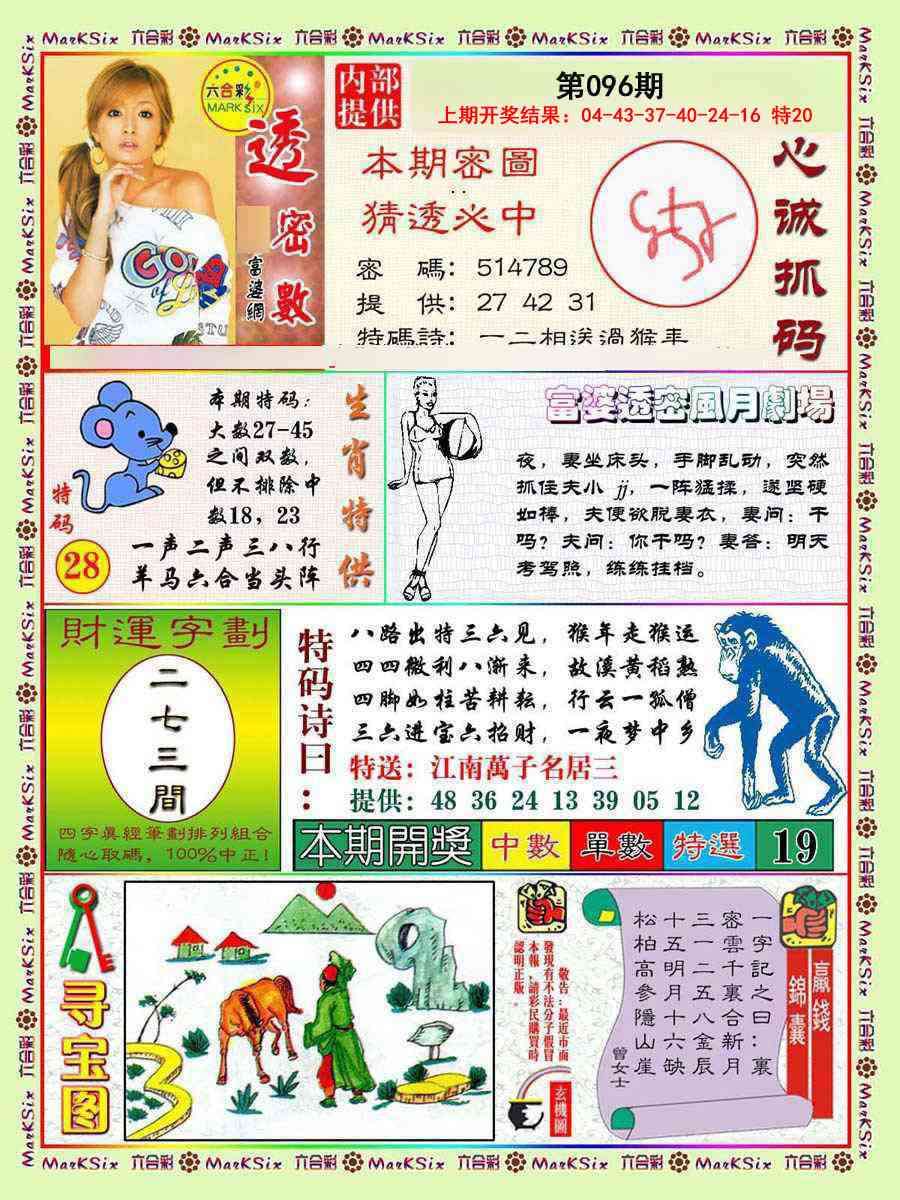 MarKSix 六合彩 MarKSix 六合彩 MarKSix 六合彩 MarKSix 六合彩 MarKSix 六合彩
六合彩
MARK SIX
透密數
富婆網
内部
提供
第096期
上期开奖结果：04-43-37-40-24-16 特20
本期密圖
猜透必中
密 碼：514789
提 供：27 42 31
特碼詩：一二相送過猴年
心诚抓码
本期特码：
大数27-45
之间双数，
但不排除中
数18，23
特码
28
一声二声三八行
羊马六合当头阵
生肖特供
富婆透密風月劇場
夜，妻坐床头，手脚乱动，突然
抓住夫小 jj，一阵猛揉，遂坚硬
如棒，夫便欲脱妻衣，妻问：干
吗？夫问：你干吗？妻答：明天
考驾照，练练挂档。
財運字劃
二七三間
四字眞經筆劃排列組合
隨心取碼，100%中正！
特码诗曰：
八路出特三六见，猴年走猴运
四四微利八渐来，故漠黄稻熟
四脚如柱苦耕耘，行云一孤僧
三六进宝六招财，一夜梦中乡
特送：江南萬子名居三
提供：48 36 24 13 39 05 12
本期開獎 中數 單數 特選 19
寻宝图
敬告：最近市面
發現有不法分子假冒
本報，請彩民購買時
認明正版。
玄機圖
一字記之曰：裏
密雲千裏合新月
三一二五八金辰
十五明月十六缺
松柏高參隱山崖
曾女士
贏錢
錦囊
MarKSix 六合彩 MarKSix 六合彩 MarKSix 六合彩 MarKSix 六合彩 MarKSix 六合彩